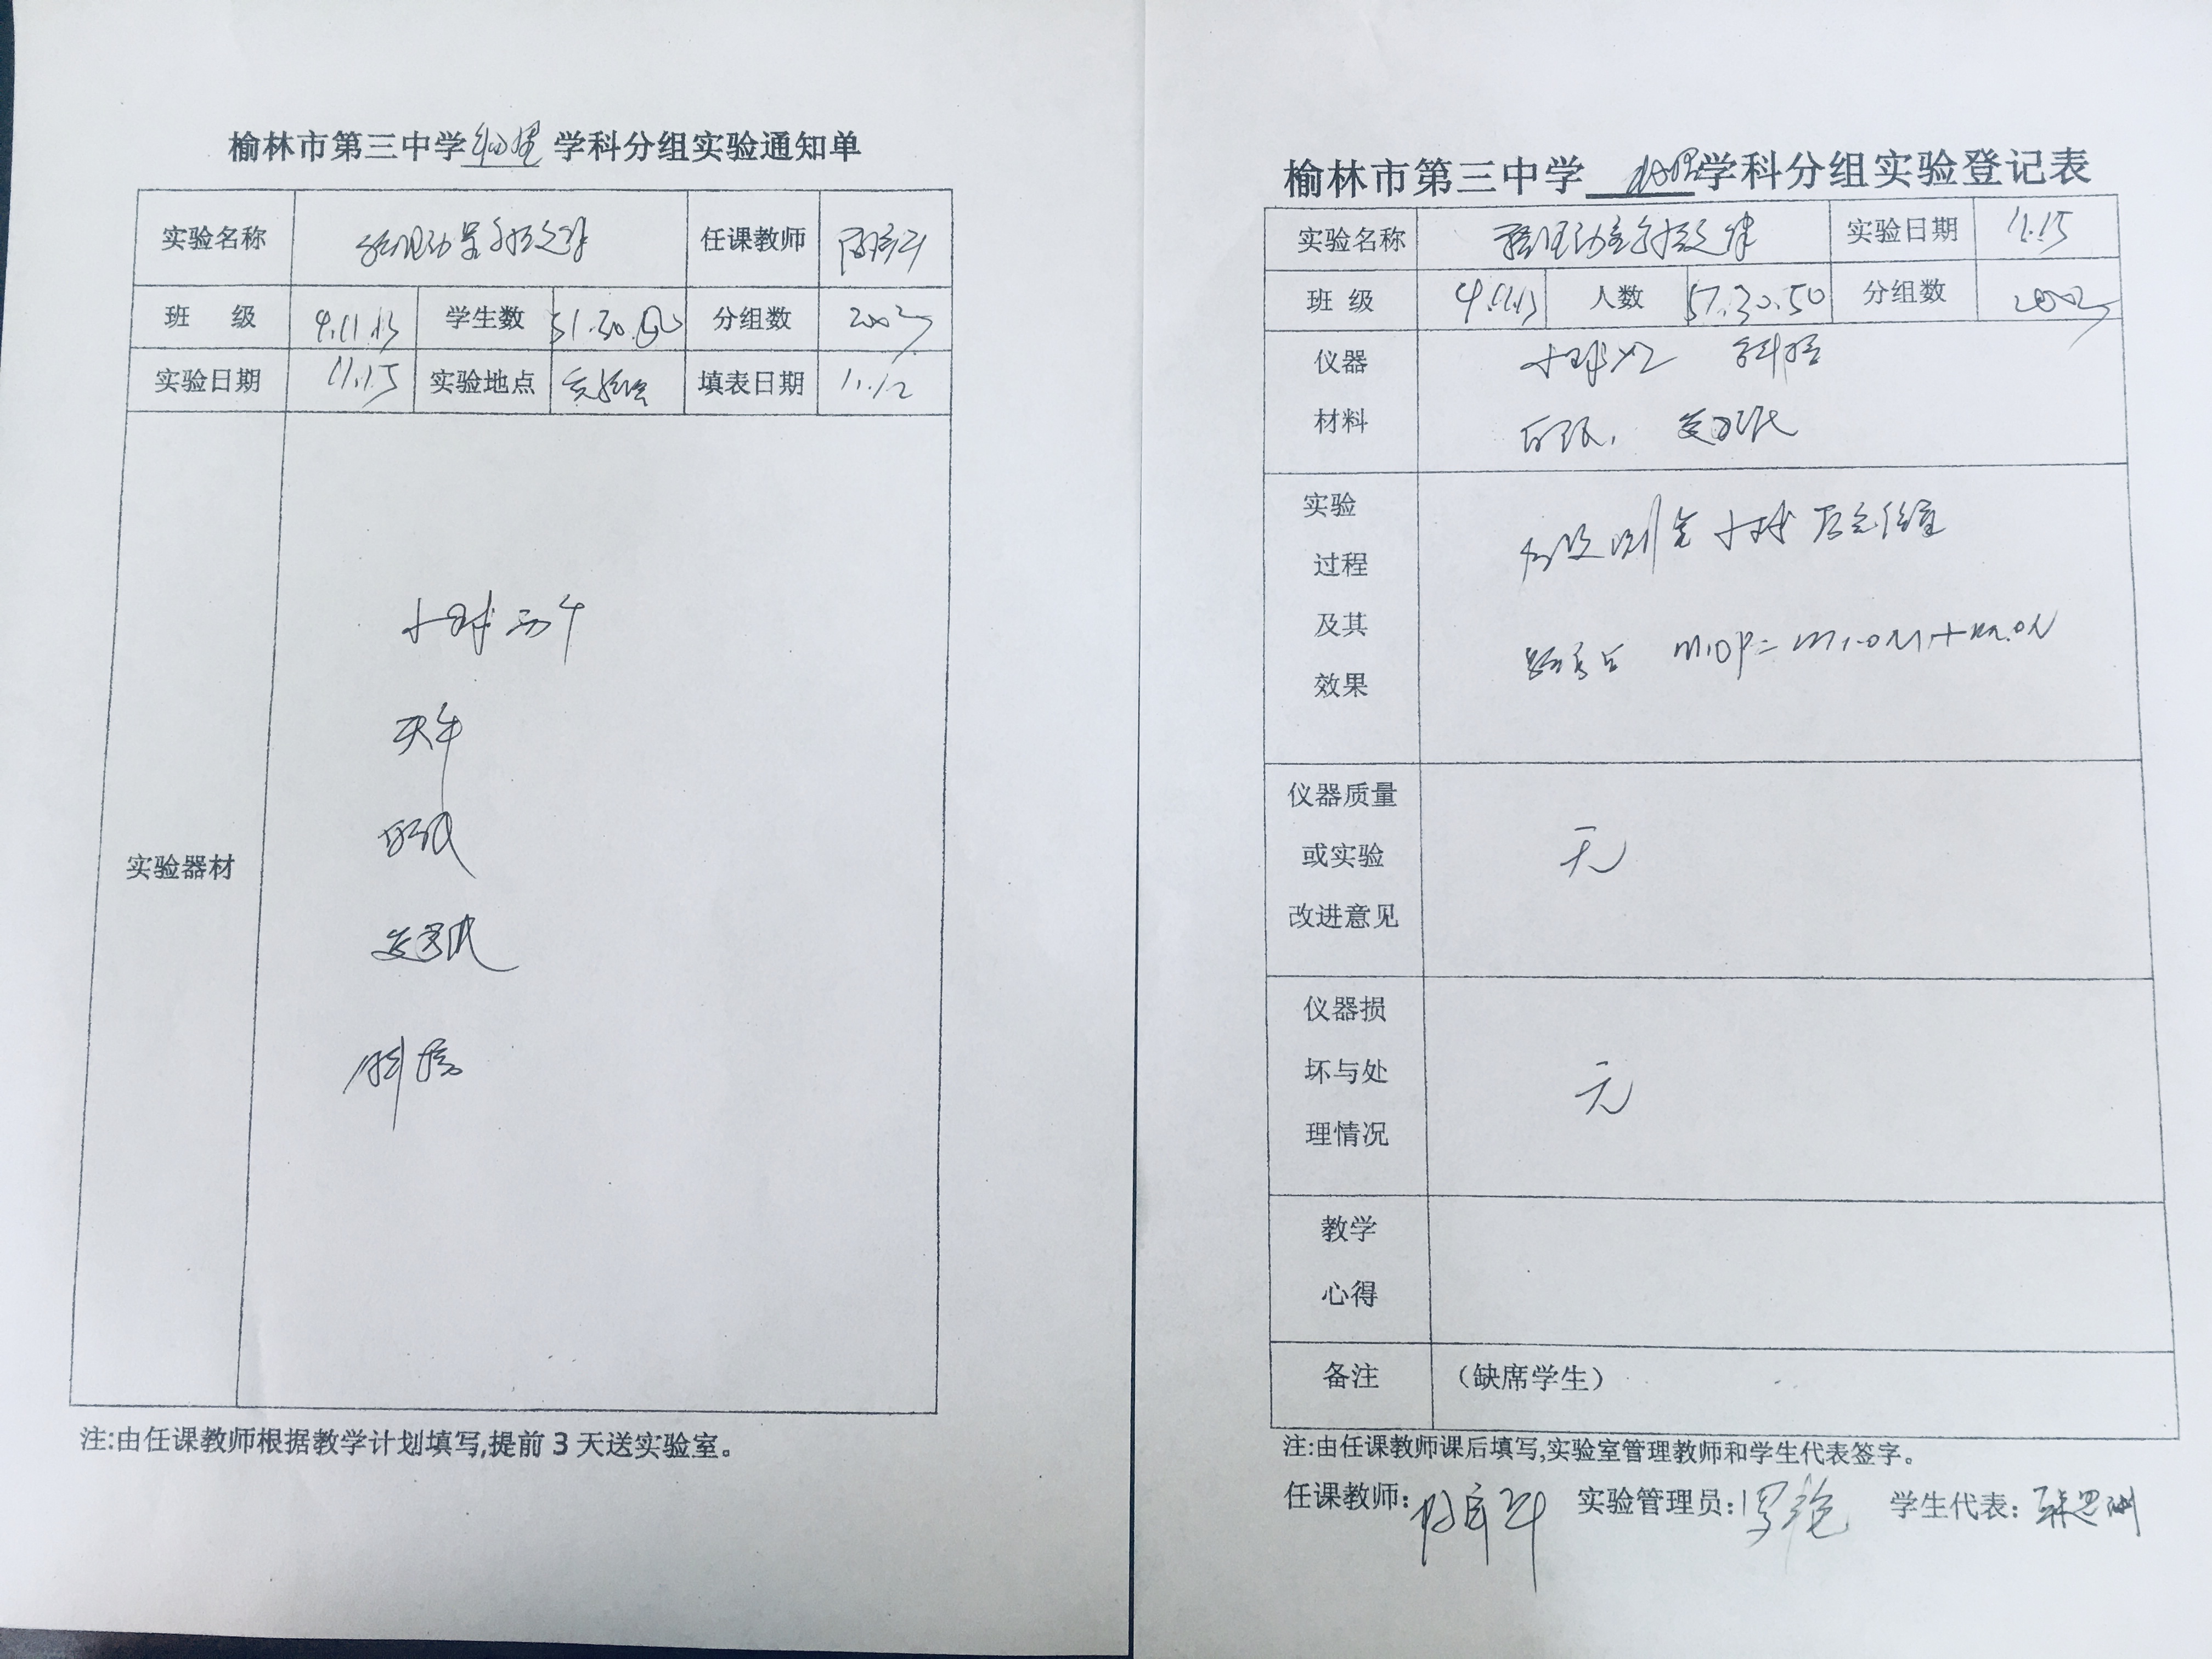 榆林市第三中学物理学科分组实验通知单
实验名称 验证动量守恒定律 任课教师
班 级 9.11.13 学生数 51.50 分组数
实验日期 11.15 实验地点 实验室 填表日期 11.12
实验器材
小球两个
天平
白纸
复写纸
斜槽
注:由任课教师根据教学计划填写,提前3天送实验室。
榆林市第三中学物理学科分组实验登记表
实验名称 验证动量守恒定律 实验日期 11.15
班 级 人数 57.30.50 分组数
仪器
材料
小球x2 斜槽
白纸, 复写纸
实验
过程
及其
效果
测定小球 位置
m1OP=m1·OM+m2·ON
仪器质量
或实验
改进意见
无
仪器损
坏与处
理情况
无
教学
心得
备注 (缺席学生)
注:由任课教师课后填写,实验室管理教师和学生代表签字。
任课教师: 实验管理员: 学生代表: